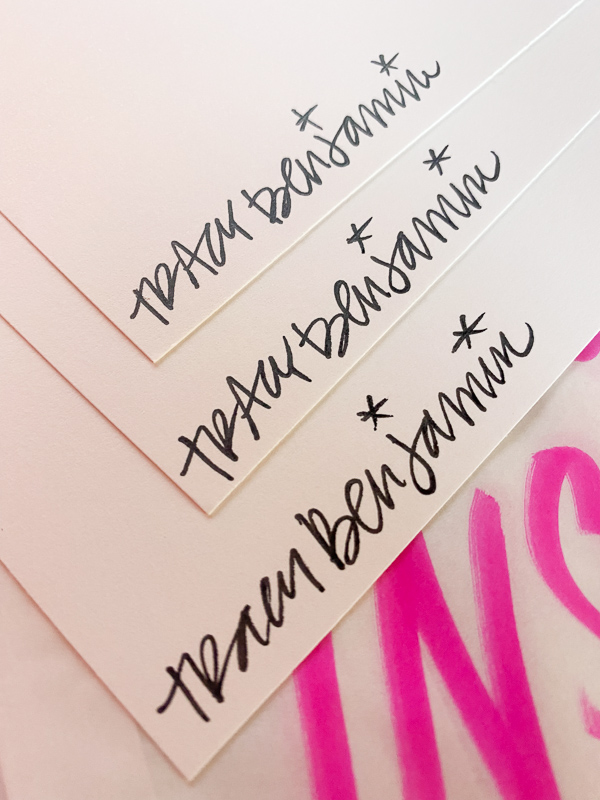 TRACY Benjamin
TRACY Benjamin
TRACY Benjamin
INS